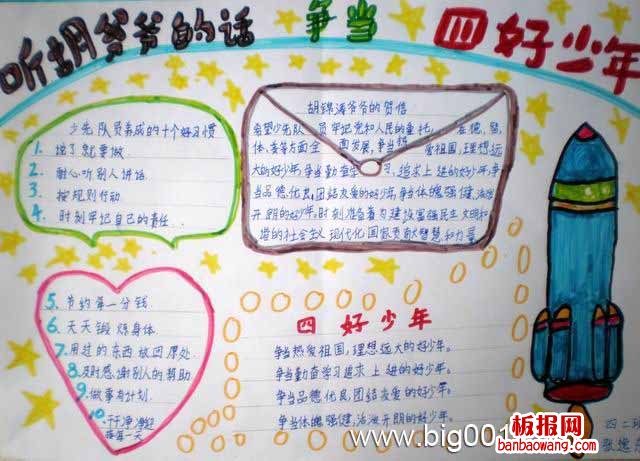 听胡爷爷的话 争当 四好少年
少先队员养成的十个好习惯
1. 说了就要做.
2. 耐心听别人讲话.
3. 按规则行动.
4. 时刻牢记自己的责任.
胡锦涛爷爷的贺信
希望少先队员牢记党和人民的重托,在德、智、
体、美等方面全面发展,争当热爱祖国、理想远
大的好少年,争当勤奋学习、追求上进的好少年,争
当品德优良、团结友爱的好少年,争当体魄强健、活泼
开朗的好少年,时刻准备着为建设富强民主文明和
谐的社会主义现代化国家贡献智慧和力量
5. 节约每一分钱.
6. 天天锻炼身体.
7. 用过的东西放回原处.
8. 及时感谢别人的帮助
9. 做事有计划.
10. 干干净净迎接每一天
四好少年
争当热爱祖国,理想远大的好少年。
争当勤奋学习追求上进的好少年。
争当品德优良,团结友爱的好少年。
争当体魄强健,活泼开朗的好少年。
四二班
www.big001
板报网
banbaowang.com